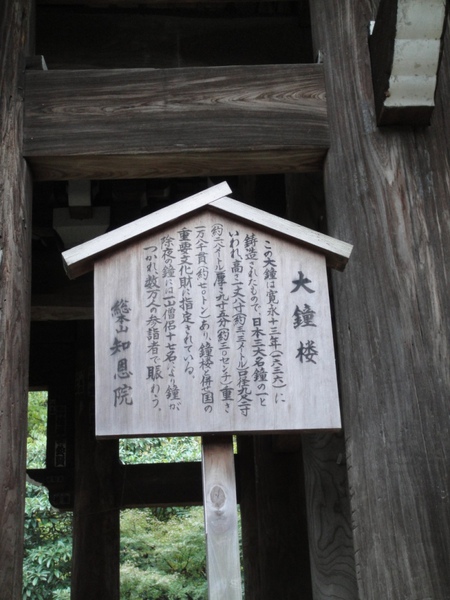 大鐘楼
この大鐘は寛永十三年(一六三六)に
鋳造されたもので、日本三大名鐘の一と
いわれ、高さ一丈八寸(約三・三メートル)口径九尺二寸
(約二・八メートル)厚さ九寸五分(約三〇センチ)重さ
一万八千貫(約七〇トン)あり、鐘楼と併せ国の
重要文化財に指定されている。
除夜の鐘には一山僧侶十七名により鐘が
つかれ数万人の参詣者で賑わう。
総本山 知恩院